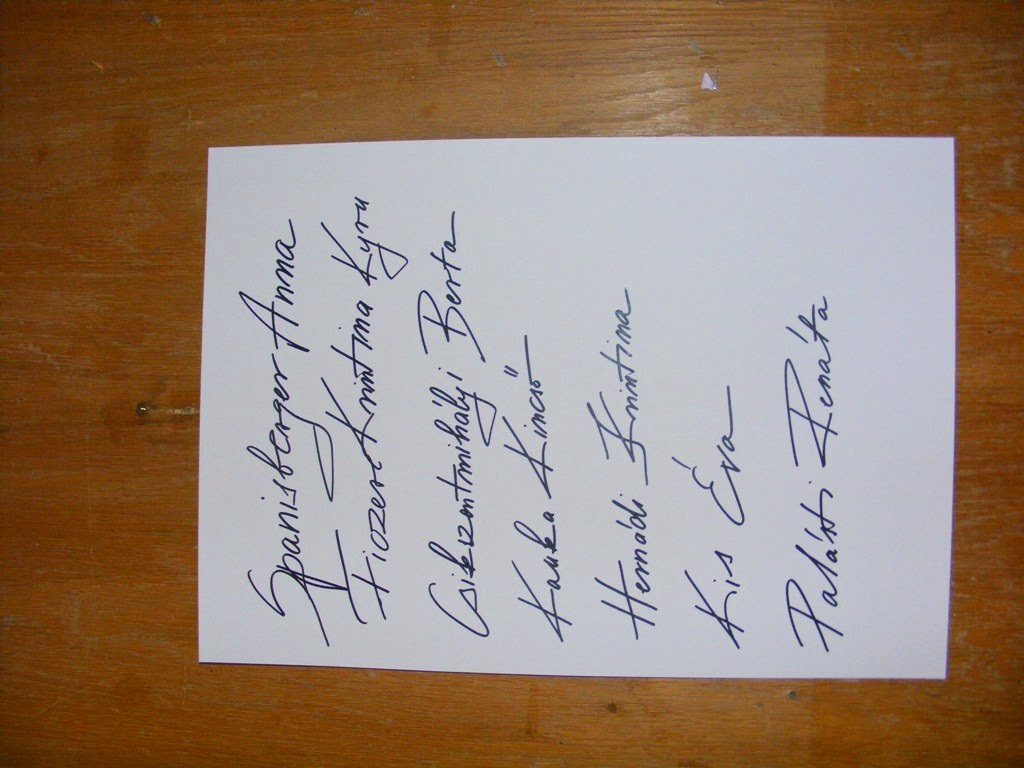 Spanisberger Anna
Krisztina Kyra
Csikszentmihályi Berta
Kauka Kincső
Hernádi Krisztina
Kis Éva
Palásti Renáta